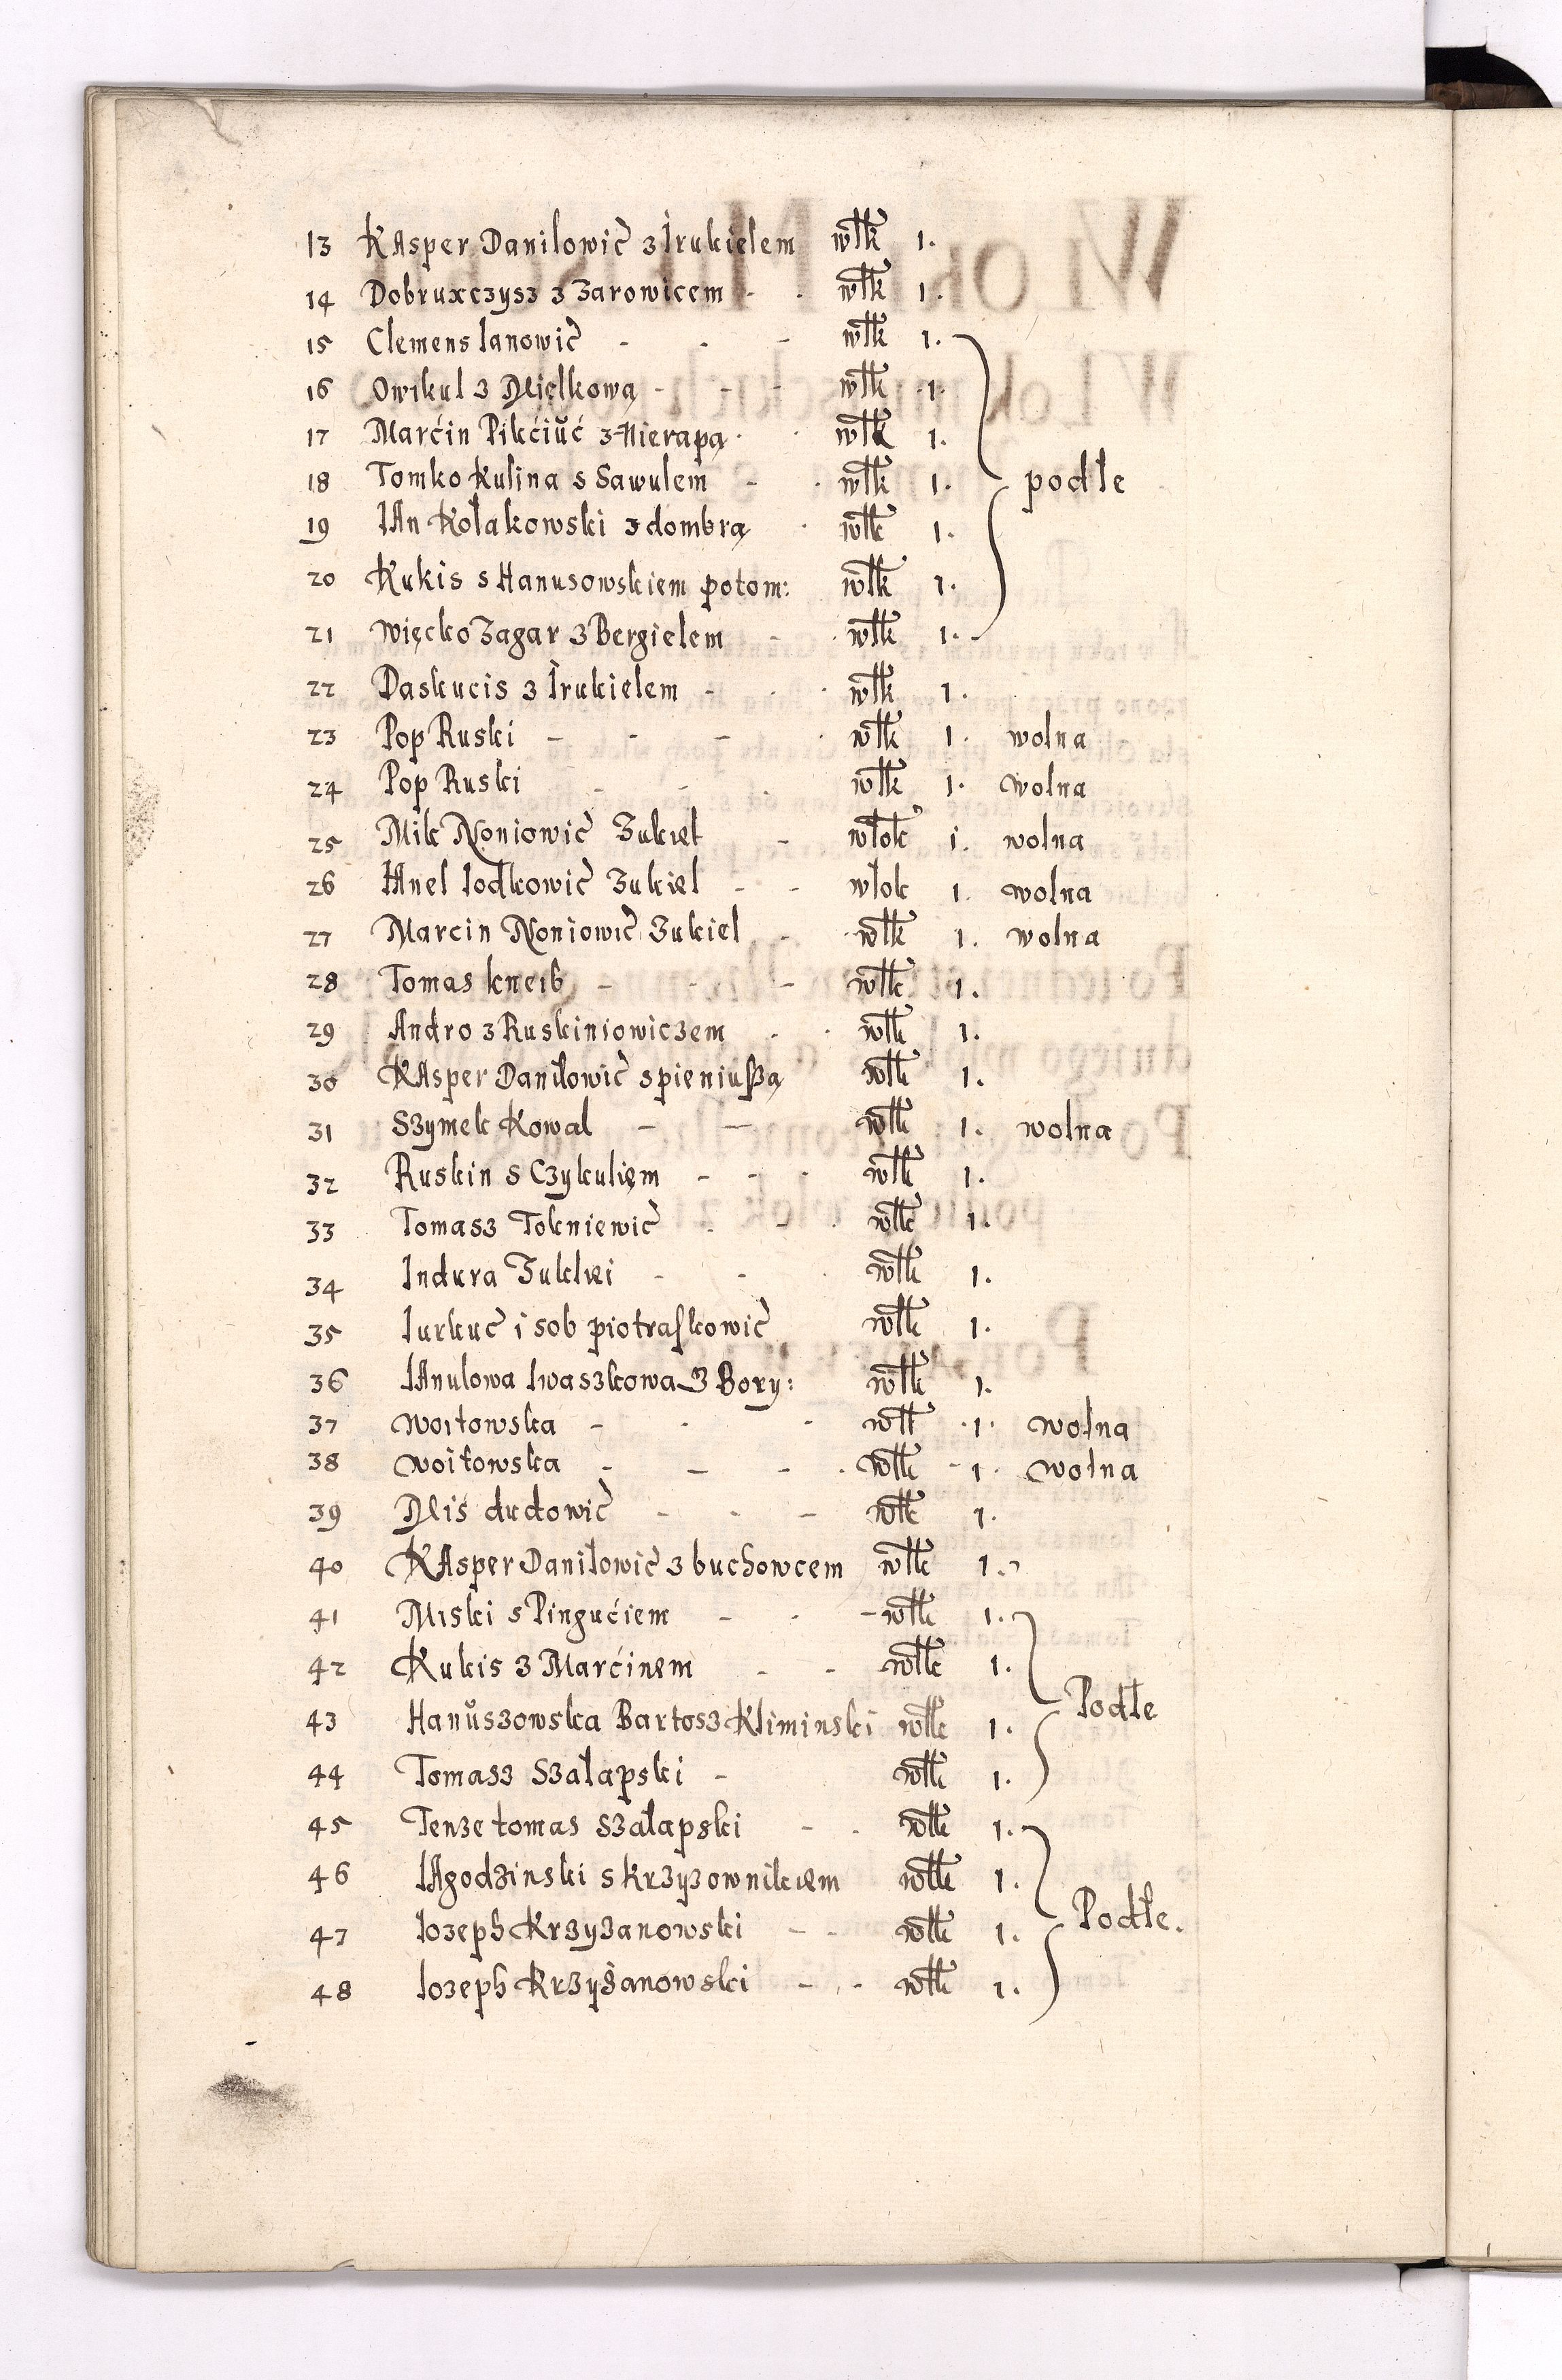 13 KAsper Danilowic̀ z Irukielem włk 1.
14 Dobruxczysz z Zarowicem - - włk 1.
15 Clemens Ianowic̀ - - - włk 1.
16 Owikul z Mięlkową - - - włk 1.
17 Marćin Pikćiŭć z Nierapą włk 1.
18 Tomko Kulina s Sawulem - włk 1. podłe
19 IAn Kołakowski z dombrą włk 1.
20 Kukis s Hanusowskiem potom: włk 1.
21 więcko Zagar z Bergielem - włk 1.
22 Daskucis z Irukielem - włk 1.
23 Pop Ruski - - - włk 1. wolna
24 Pop Ruski - - - włk 1. wolna
25 Mik Noniowic̀ Zukiel - włok 1. wolna
26 HAnel Iodkowic̀ Zukiel - - włok 1. wolna
27 Marcin Noniowic̀ Zukiel - włk 1. wolna
28 Tomas kneib - - - włk 1.
29 Andro z Ruskiniowiczem włk 1.
30 KAsper Daniłowic̀ s pieniuſzą włk 1.
31 Szymek Kowal - - włk 1. wolna
32 Ruskin s Czykulięm - - - włk 1.
33 Tomasz Tokniewic̀ - - - włk 1.
34 Indura Zukliei - - włk 1.
35 Iurkuc̀ i sob piotraſkowic̀ włk 1.
36 IAnulowa Iwaszkowa z Bory: włk 1.
37 woitowska - - - włk 1. wolna
38 woitowska - - - włk 1. wolna
39 Mis dudowic̀ - - - włk 1.
40 KAsper Daniłowic̀ z buchowcem włk 1.
41 Miski s Pingućiem - - włk 1.
42 Kukis z Marćinem - - włk 1.
43 Hanŭszowska Bartosz Kliminski włk 1. Podłe
44 Tomasz Szałapski - włk 1.
45 Tenze tomas Szałapski - - włk 1.
46 IAgodzinski s krzyzownikiem włk 1.
47 Iozeph Krzyzanowski - - włk 1. Podłe.
48 Iozeph Krzyżanowski - - włk 1.